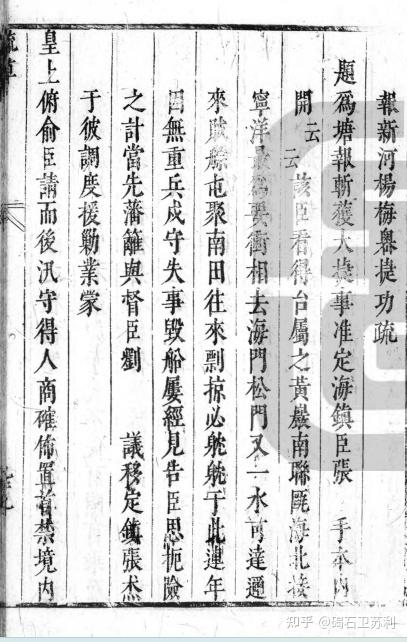 報新河楊梅嶴捷功疏
題爲塘報斬獲大捷事准定海鎮臣張 手本內
開云云該臣看得台屬之黃巖南聯甌海北接
寧洋最爲要衝相去海門松門又一水可達邇
來賊艅屯聚南田往來剽掠必躭躭于此連年
因無重兵戍守失事毀船屢經見告臣思扼險
之計當先藩籬與督臣劉 議移定鎮張杰
于彼調度援勦業蒙
皇上俯俞臣請而後汛守得人商確佈置首禁境內
疏草
知乎 @碣石卫苏科